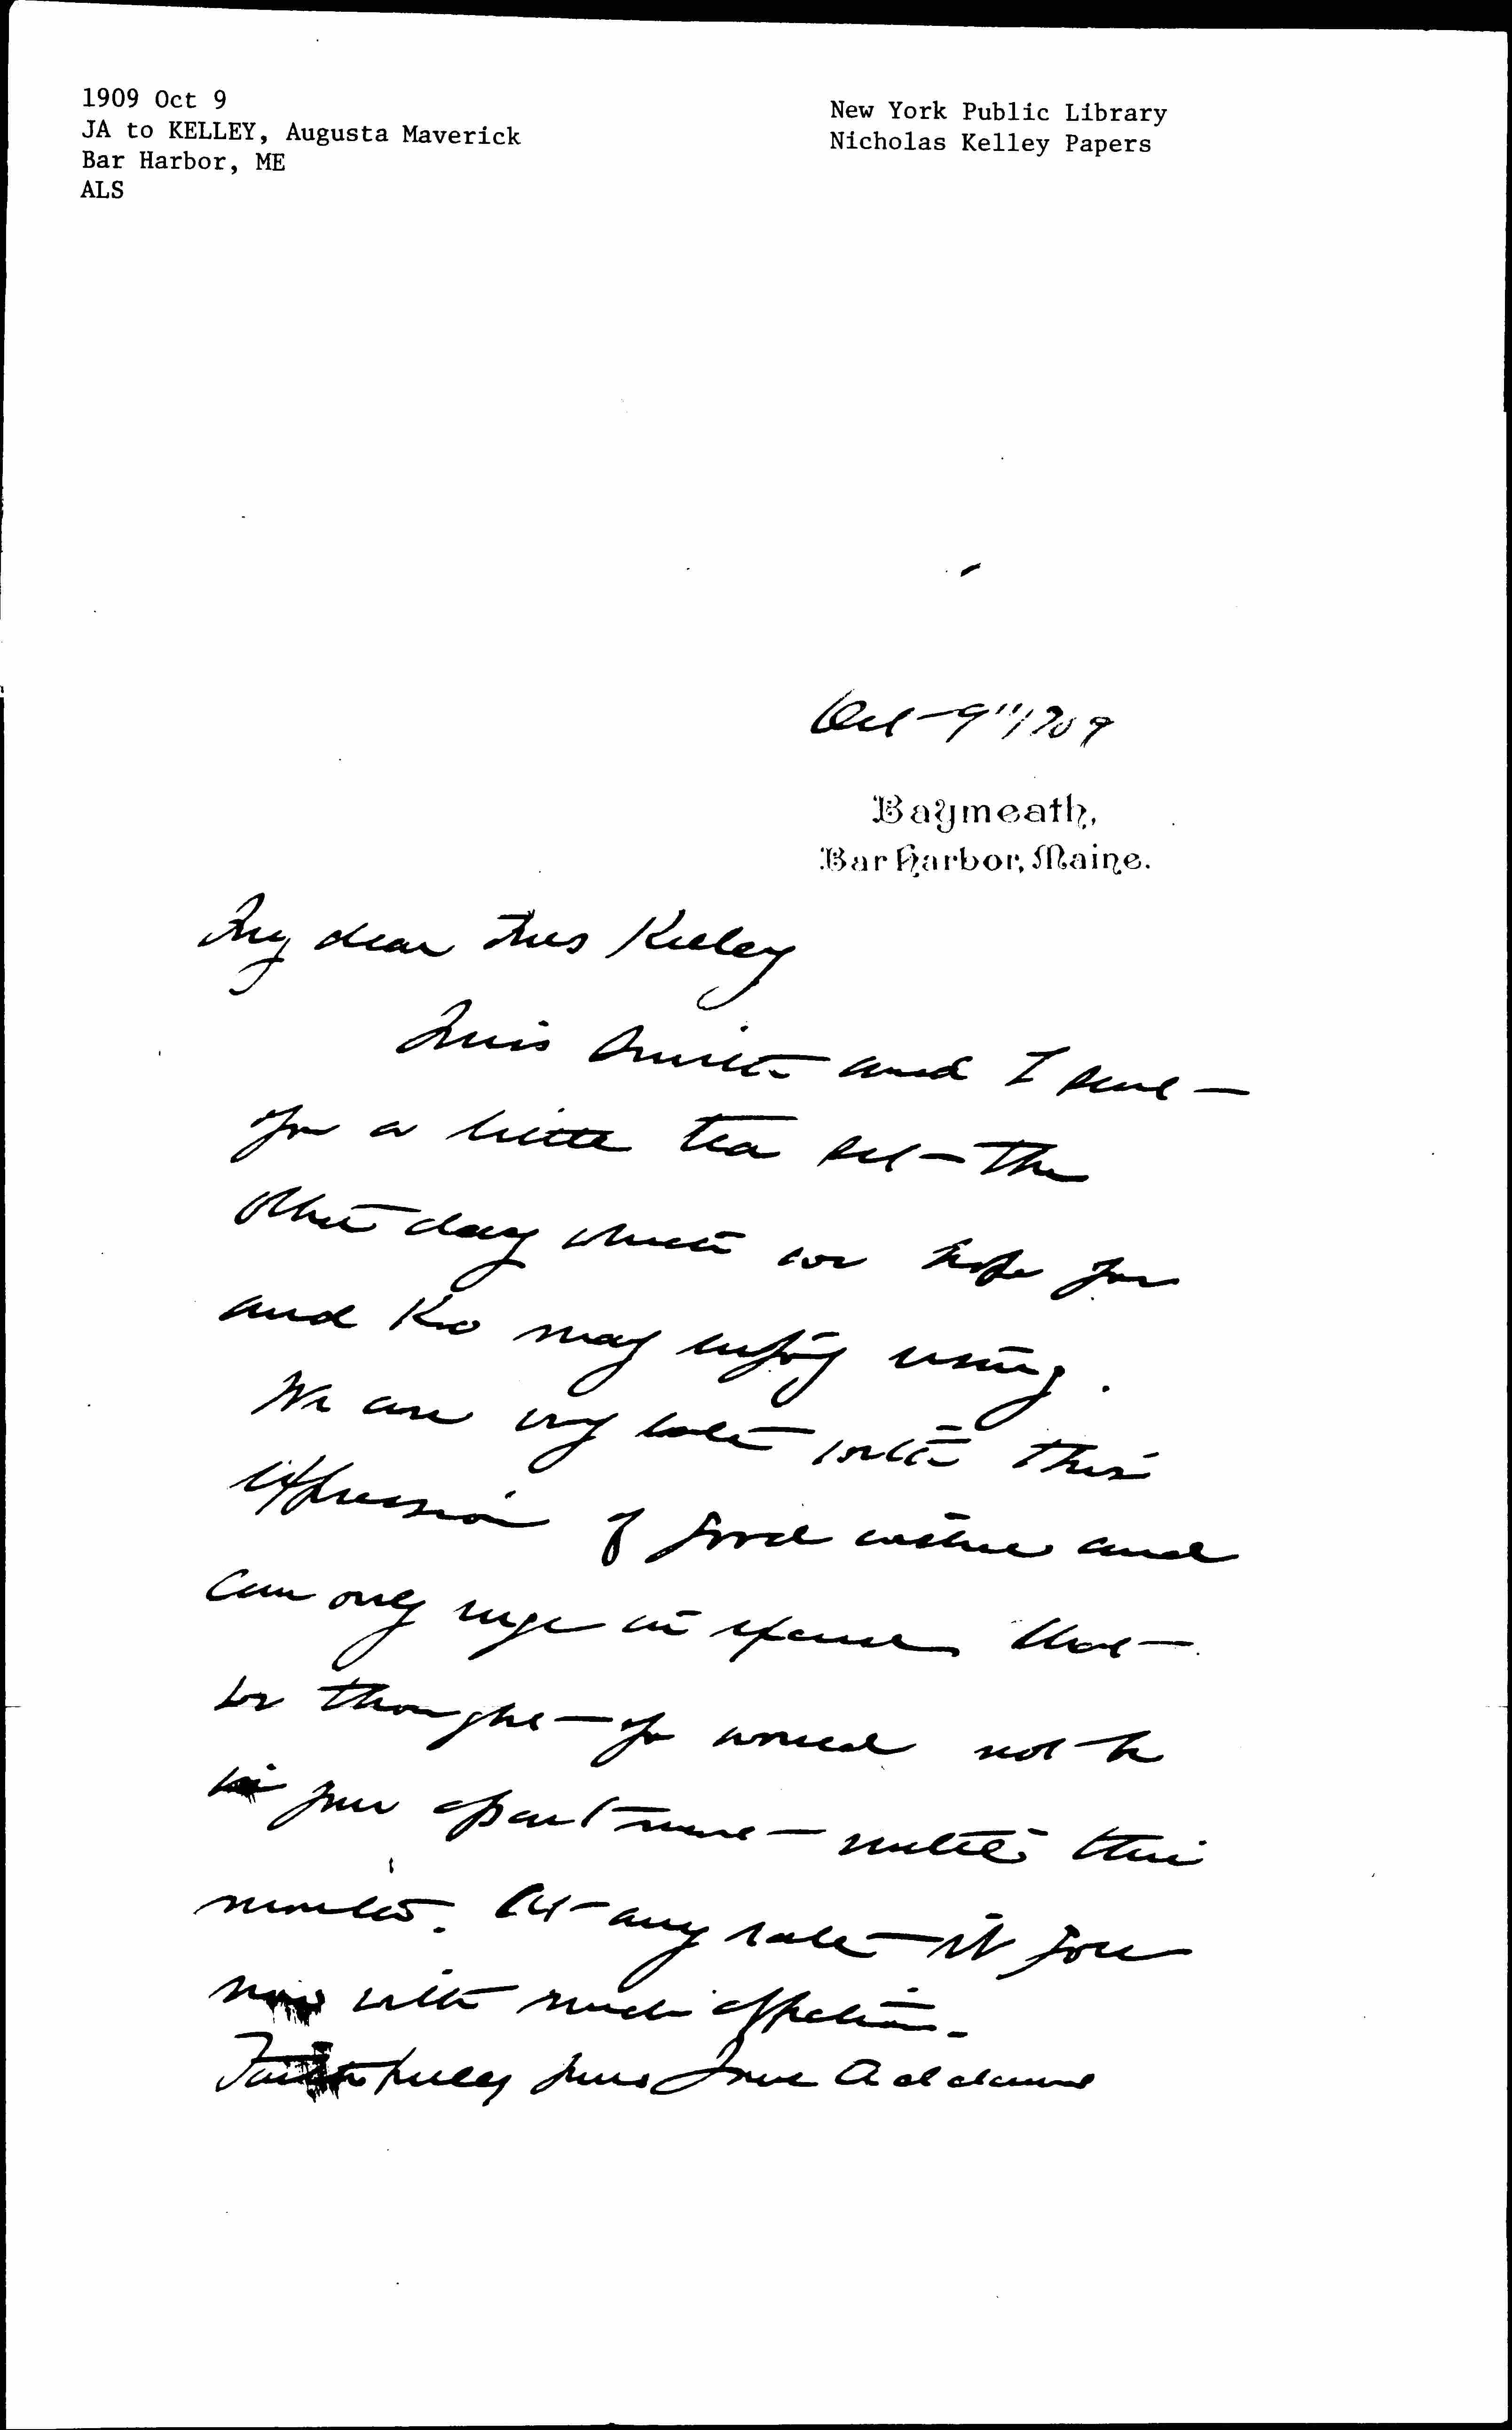 1909 Oct 9
JA to KELLEY, Augusta Maverick
Bar Harbor, ME
ALS
New York Public Library
Nicholas Kelley Papers
Oct 9" 1909
Baymeath,
Bar Harbor, Maine.
My dear Mrs Kelley
Miss Smith and I sent
you a little tea set the
other day which we hope you
and Ko may enjoy using.
We are very late with this
expression of good wishes and
can only urge in excuse that
we thought you would not be
in your apartment until this
month. At any rate it goes
now with much affection.
Faithfully yours Jane Addams